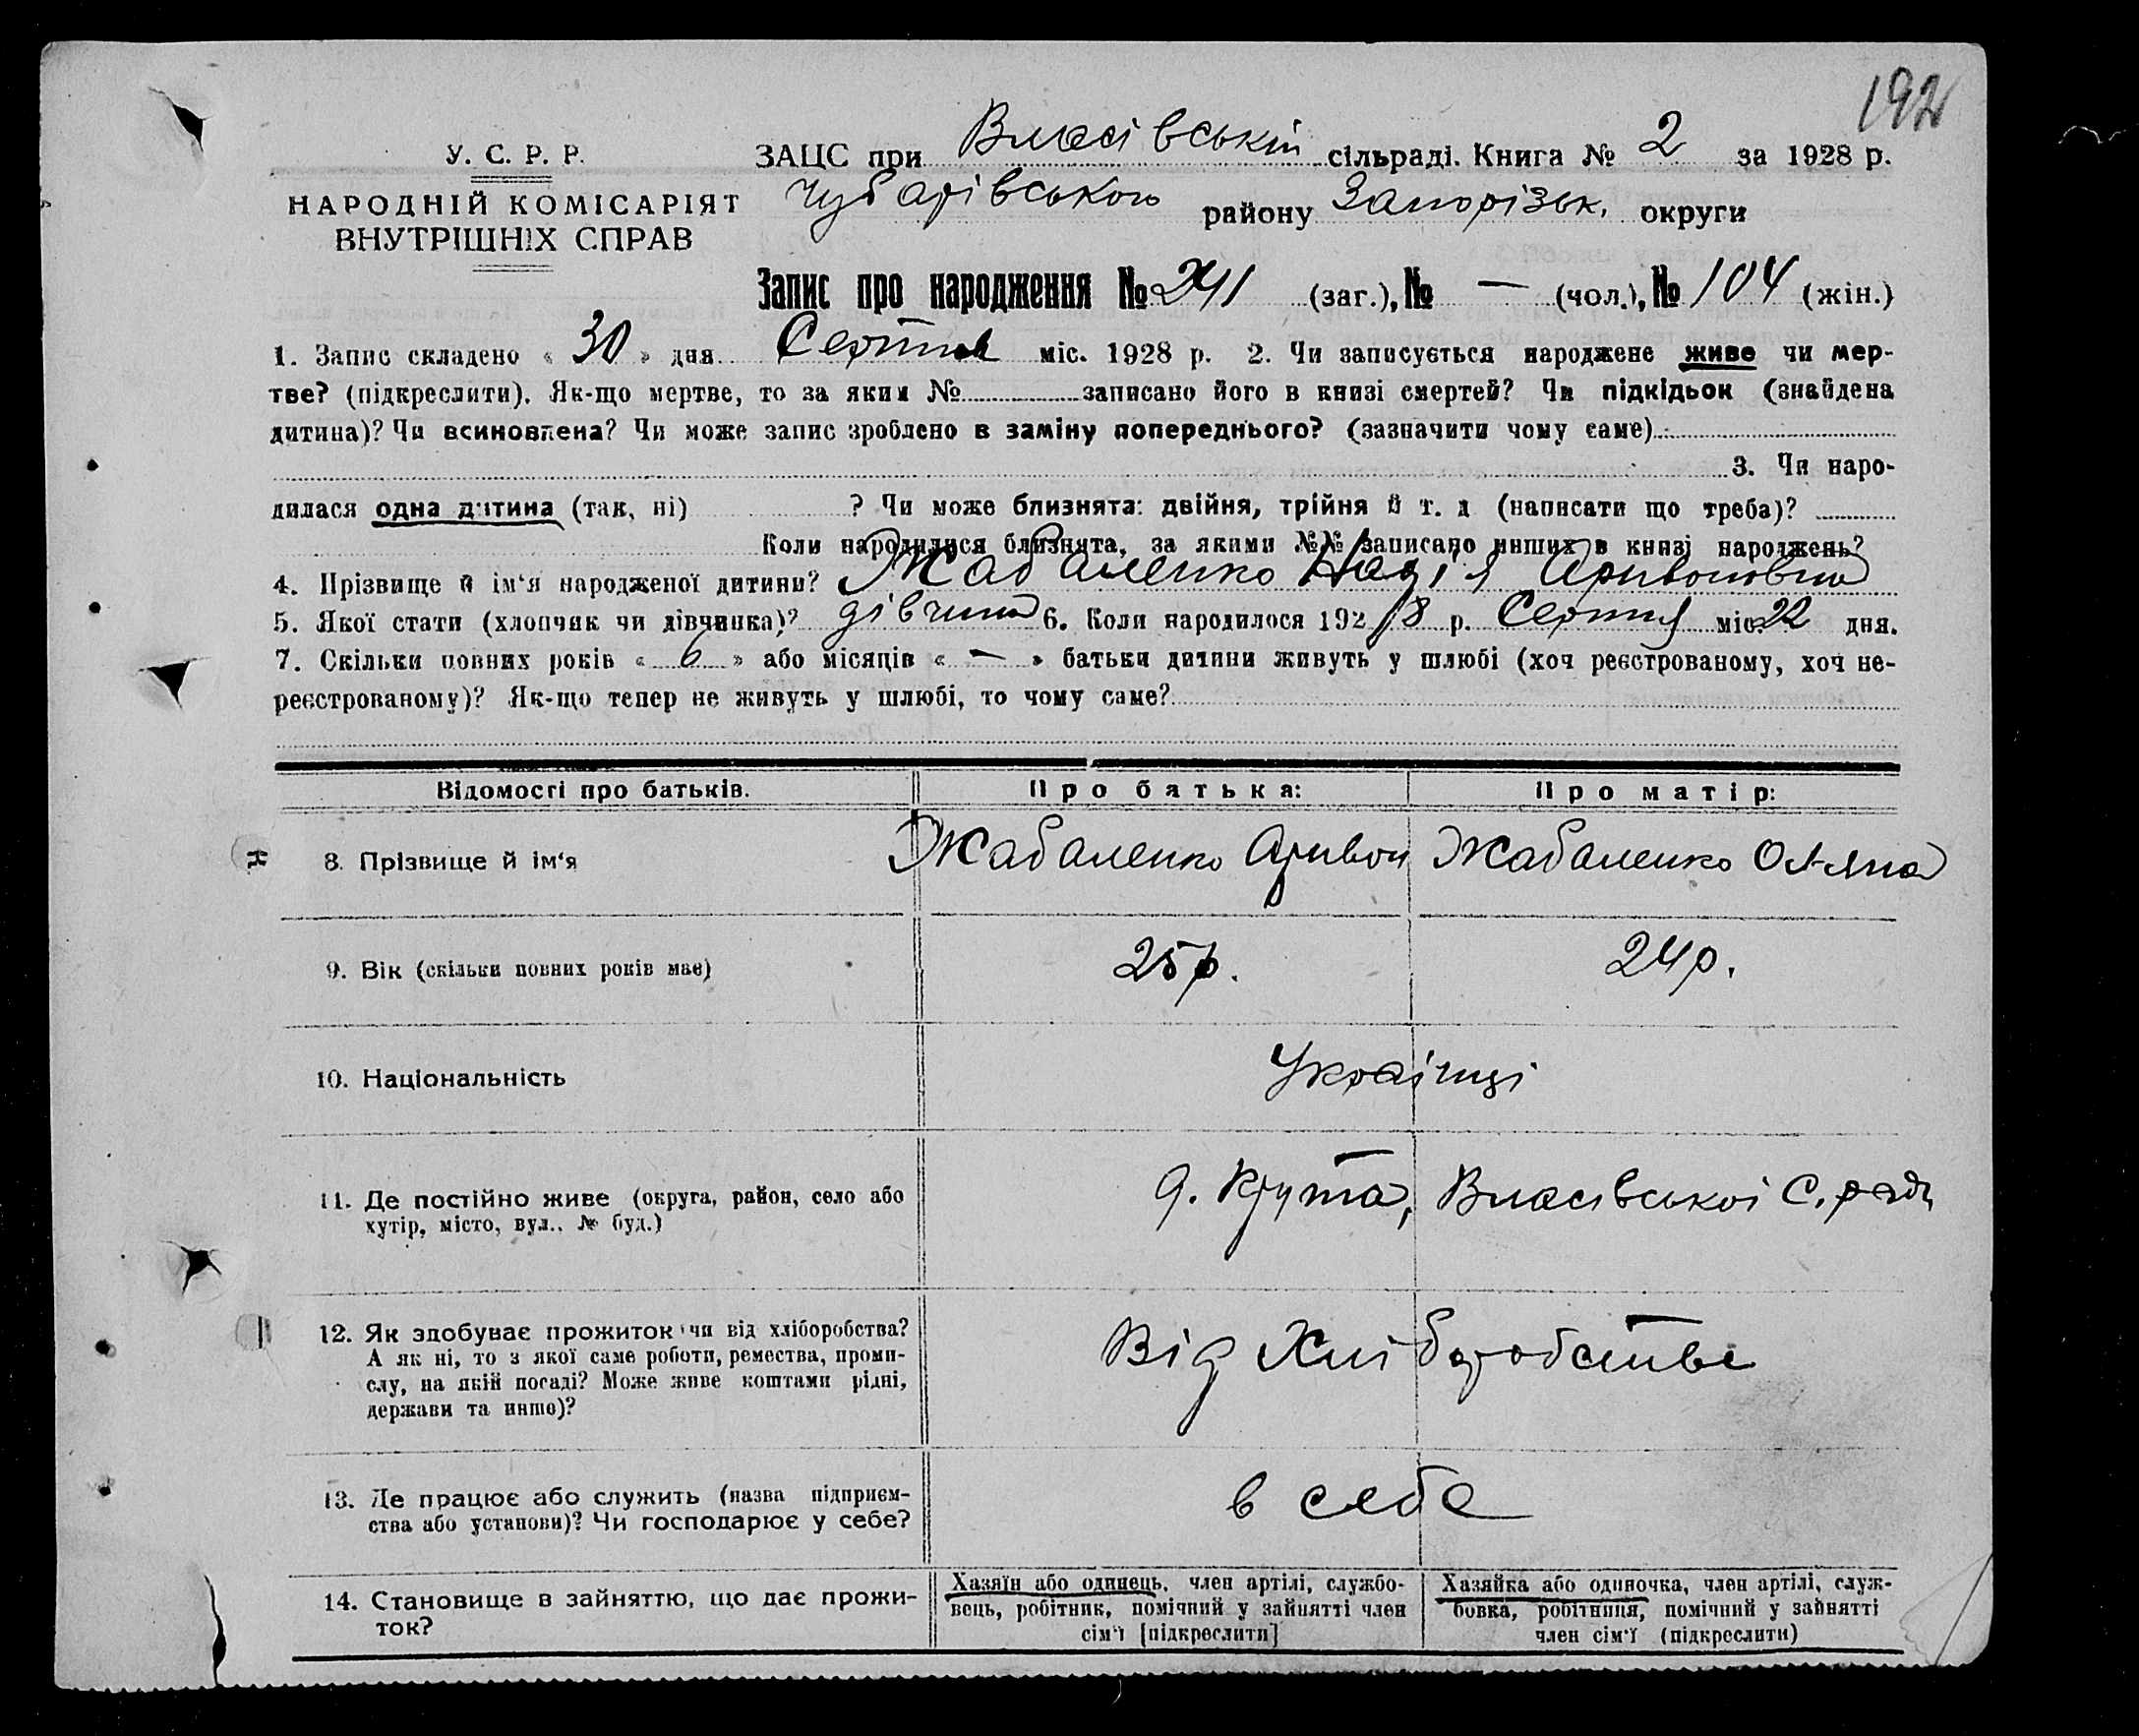 192
У. С. Р. Р.
НАРОДНІЙ КОМІСАРІЯТ
ВНУТРІШНІХ СПРАВ
ЗАЦС при Власівській сільраді. Книга № 2 за 1928 р.
Чубарівського району Запорізьк. округи
Запис про народження № 241 (заг.), № — (чол.), № 104 (жін.)
1. Запис складено « 30 » дня Серпня міс. 1928 р. 2. Чи записується народжене живе чи мер-
тве? (підкреслити). Як-що мертве, то за яким № записано його в книзі смертей? Чи підкідьок (знайдена
дитина)? Чи всиновлена? Чи може запис зроблено в заміну попереднього? (зазначити чому саме)
3. Чи наро-
дилася одна дитина (так, ні) ? Чи може близнята: двійня, трійня й т. д (написати що треба)?
Коли народилися близнята, за якими №№ записано инших в книзі народжень?
4. Прізвище й ім‘я народженої дитини? Жабаленко Надія
5. Якої стати (хлопчик чи дівчинка)? дівчина 6. Коли народилося 1928 р. Серпня міс. 22 дня.
7. Скільки повних років « 6 » або місяців « — » батьки дитини живуть у шлюбі (хоч реєстрованому, хоч не-
реєстрованому)? Як-що тепер не живуть у шлюбі, то чому саме?
Відомості про батьків. Про батька: Про матір:
8. Прізвище й ім‘я Жабаленко Жабаленко Оляна
9. Вік (скільки повних років має) 25 р. 24 р.
10. Національність Українці
11. Де постійно живе (округа, район, село або
хутір, місто, вул., № буд.)
д. Крута, Власівськоі С. ради
12. Як здобуває прожиток чи від хліборобства?
А як ні, то з якої саме роботи, ремества, проми-
слу, на якій посаді? Може живе коштами рідні,
держави та инше)?
Від Хліборобства
13. Де працює або служить (назва підприєм-
ства або установи)? Чи господарює у себе?
в себе
14. Становище в зайняттю, що дає прожи-
ток?
Хазяїн або одинець, член артілі, службо-
вець, робітник, помічний у зайнятті член
сім‘ї [підкреслити]
Хазяйка або одиночка, член артілі, служ-
бовка, робітниця, помічний у зайнятті
член сім‘ї (підкреслити)